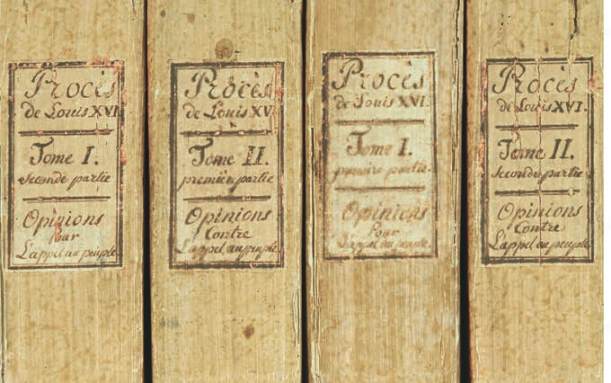 Procès
de Louis XVI
Tome I.
seconde partie
Opinions
Pour
L'appel au peuple
Procès
de Louis XV
Tome II.
premiere partie
Opinions
Contre
L'appel au peuple
Procès
de Louis XVI.
Tome I.
premiere partie
Opinions
Pour
L'appel au peuple.
Procès
de Louis XVI.
Tome II.
seconde partie
Opinions
Contre
L'appel au peuple